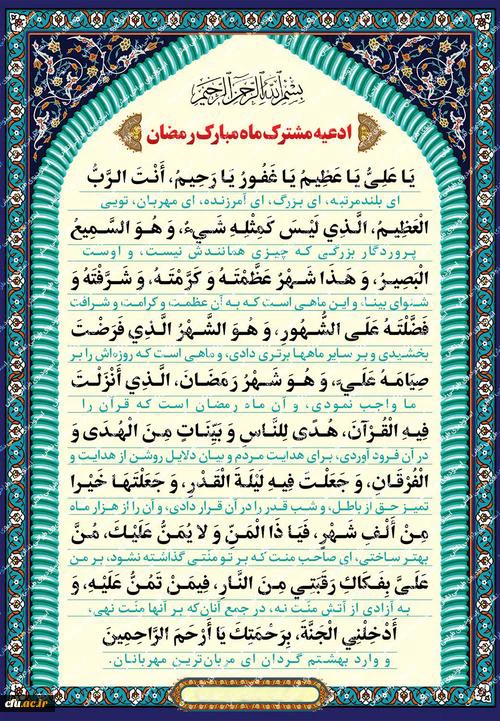 بِسْمِ اللَّهِ الرَّحْمَنِ الرَّحِیمِ
ادعیه مشترک ماه مبارک رمضان
یَا عَلِیُّ یَا عَظِیمُ یَا غَفُورُ یَا رَحِیمُ، أَنْتَ الرَّبُّ
ای بلندمرتبه، ای بزرگ، ای آمرزنده، ای مهربان، تویی
الْعَظِیمُ، الَّذِي لَیْسَ کَمِثْلِهِ شَيْءٌ، وَ هُوَ السَّمِیعُ
پروردگار بزرگی که چیزی همانندش نیست، و اوست
الْبَصِیرُ، وَ هَذَا شَهْرٌ عَظَّمْتَهُ وَ کَرَّمْتَهُ، وَ شَرَّفْتَهُ وَ
شنوای بینا، و این ماهی است که به آن عظمت و کرامت و شرافت
فَضَّلْتَهُ عَلَی الشُّهُورِ، وَ هُوَ الشَّهْرُ الَّذِي فَرَضْتَ
بخشیدی و بر سایر ماهها برتری دادی، و ماهی است که روزه‌اش را بر
صِیَامَهُ عَلَيَّ، وَ هُوَ شَهْرُ رَمَضَانَ، الَّذِي أَنْزَلْتَ
ما واجب نمودی، و آن ماه رمضان است که قرآن را
فِیهِ الْقُرْآنَ، هُدًی لِلنَّاسِ وَ بَیِّنَاتٍ مِنَ الْهُدَی وَ
در آن فرود آوردی، برای هدایت مردم و بیان دلایل روشن از هدایت و
الْفُرْقَانِ، وَ جَعَلْتَ فِیهِ لَیْلَةَ الْقَدْرِ، وَ جَعَلْتَهَا خَیْرا
تمیز حق از باطل، و شب قدر را در آن قرار دادی، و آن را از هزار ماه
مِنْ أَلْفِ شَهْرٍ، فَیَا ذَا الْمَنِّ وَ لا یُمَنُّ عَلَیْكَ، مُنَّ
بهتر ساختی، ای صاحب منت که بر تو منّتی گذاشته نشود، بر من
عَلَيَّ بِفَکَاكِ رَقَبَتِي مِنَ النَّارِ، فِیمَنْ تَمُنُّ عَلَیْهِ، وَ
به آزادی از آتش منّت نه، در جمع آنان‌که بر آنها منّت نهی،
أَدْخِلْنِي الْجَنَّةَ، بِرَحْمَتِكَ یَا أَرْحَمَ الرَّاحِمِینَ
و وارد بهشتم گردان ای مهربان‌ترین مهربانان.
cfu.ac.ir